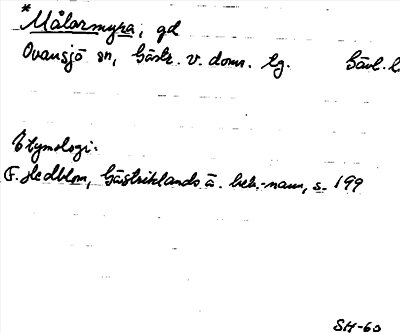 * Målarmyra, gd
Ovansjö sn, Gästr. v. doms. tg. Gävl. l.
Etymologi:
F. Hedblom, Gästriklands ä. beb.-namn, s. 199
SH-60